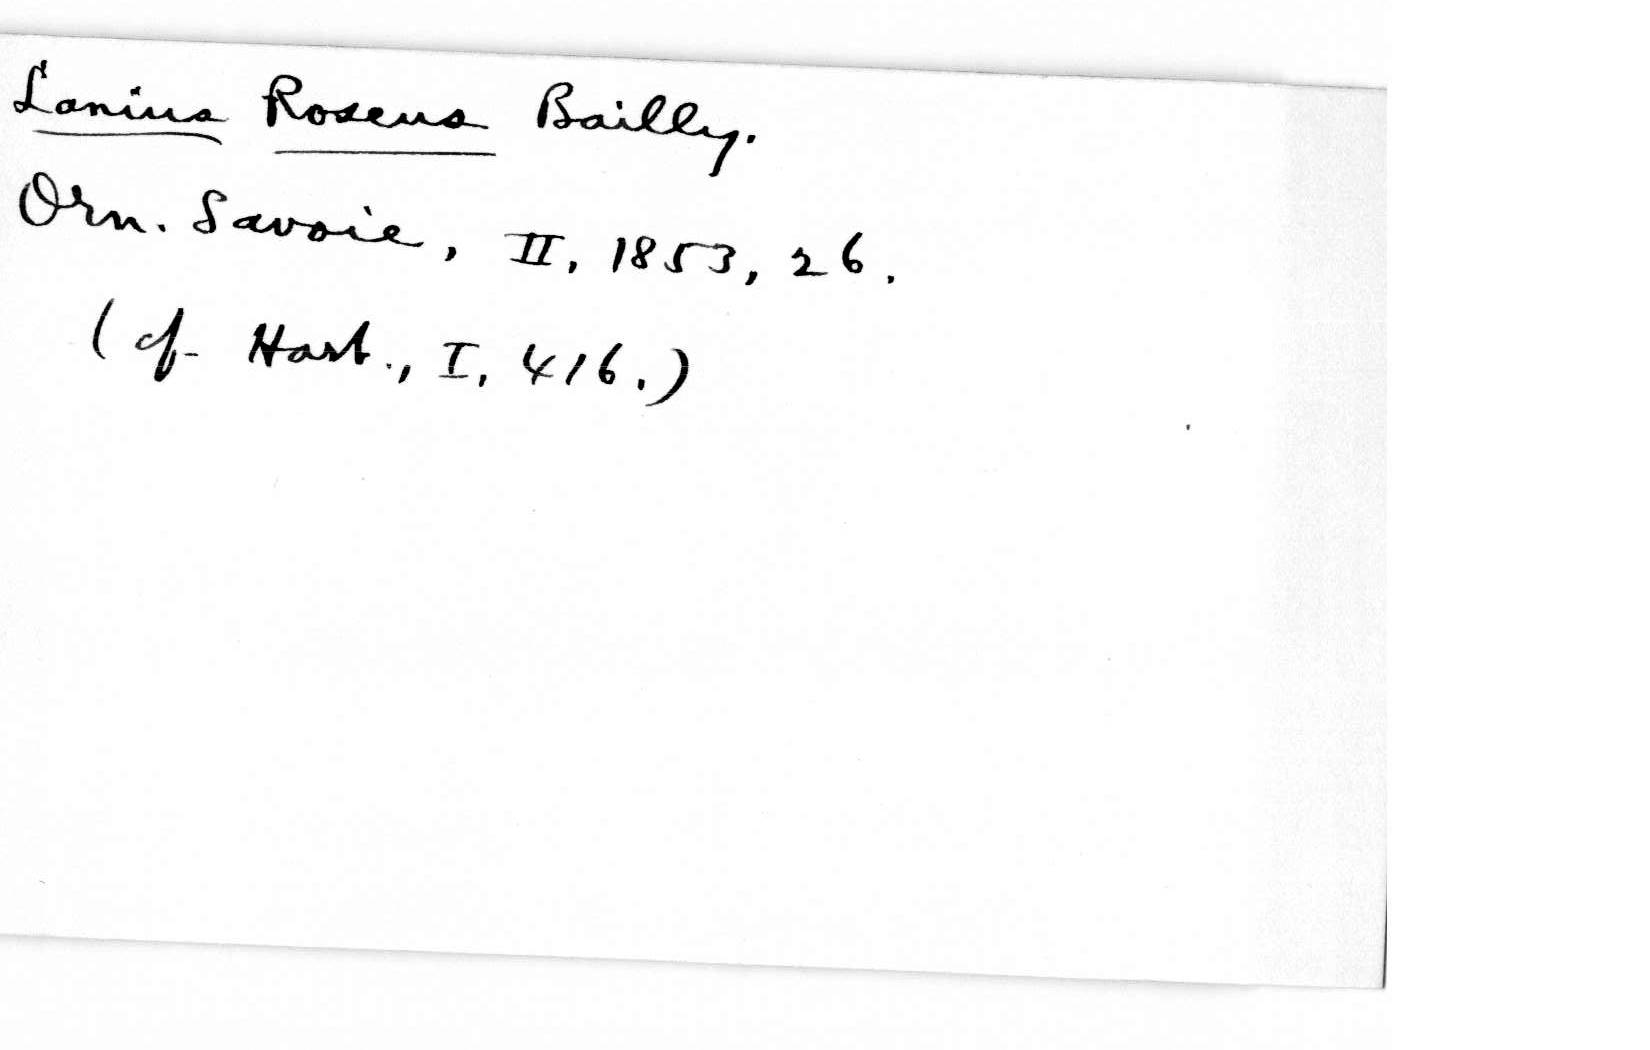 Lanius Roseus Bailly.
Orn. Savoie, II, 1853, 26.
(cf. Hart., I, 416.)